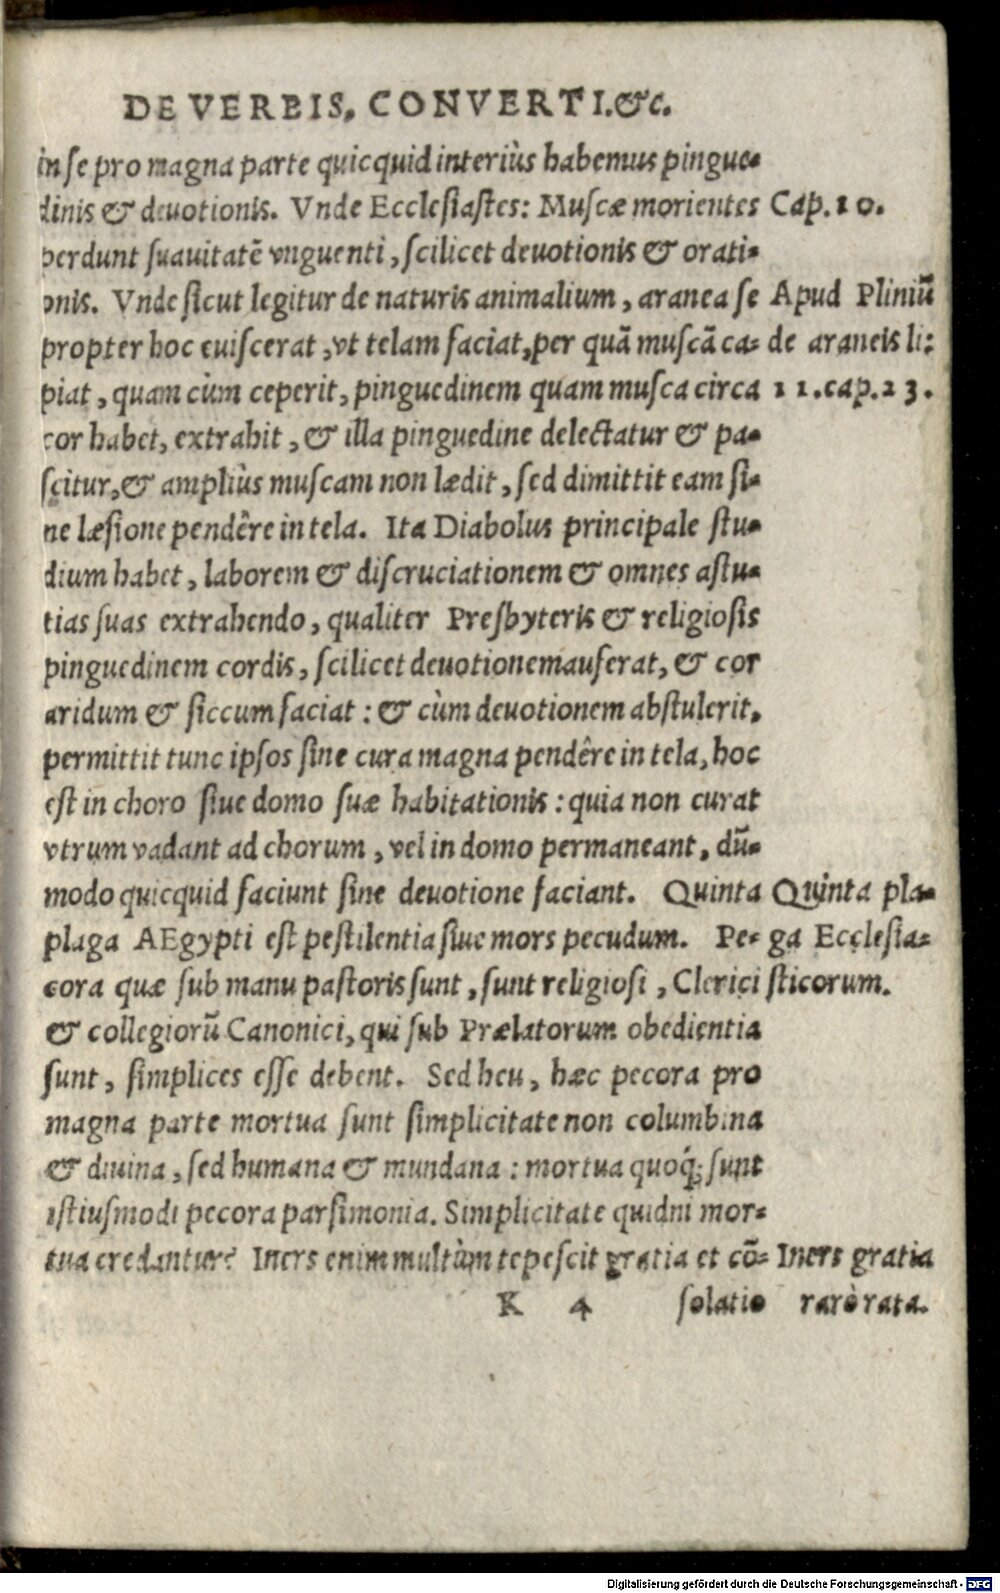 DE VERBIS, CONVERTI. &c.
in se pro magna parte quicquid interiùs habemus pingue-
dinis & deuotionis. Vnde Ecclesiastes: Muscæ morientes Cap. 10.
perdunt suauitatē vnguenti, scilicet deuotionis & orati-
onis. Vnde sicut legitur de naturis animalium, aranea se Apud Pliniū
propter hoc euiscerat, vt telam faciat, per quā muscā ca- de araneis li:
piat, quam cùm ceperit, pinguedinem quam musca circa 11. cap. 23.
cor habet, extrahit, & illa pinguedine delectatur & pa-
scitur, & ampliùs muscam non lædit, sed dimittit eam si-
ne læsione pendêre in tela. Ita Diabolus principale stu-
dium habet, laborem & discruciationem & omnes astu-
tias suas extrahendo, qualiter Presbyteris & religiosis
pinguedinem cordis, scilicet deuotionem auferat, & cor
aridum & siccum faciat: & cùm deuotionem abstulerit,
permittit tunc ipsos sine cura magna pendêre in tela, hoc
est in choro siue domo suæ habitationis: quia non curat
vtrum vadant ad chorum, vel in domo permaneant, dū-
modo quicquid faciunt sine deuotione faciant. Quinta Quinta pla-
plaga AEgypti est pestilentia siue mors pecudum. Pe- ga Ecclesia-
cora quæ sub manu pastoris sunt, sunt religiosi, Clerici sticorum.
& collegiorū Canonici, qui sub Prælatorum obedientia
sunt, simplices esse debent. Sed heu, hæc pecora pro
magna parte mortua sunt simplicitate non columbina
& diuina, sed humana & mundana: mortua quoq́; sunt
istiusmodi pecora parsimonia. Simplicitate quidni mor-
tua credantur? Iners enim multùm tepescit gratia et cō- Iners gratia
K 4 solatio rarò rata.
Digitalisierung gefördert durch die Deutsche Forschungsgemeinschaft - DFG